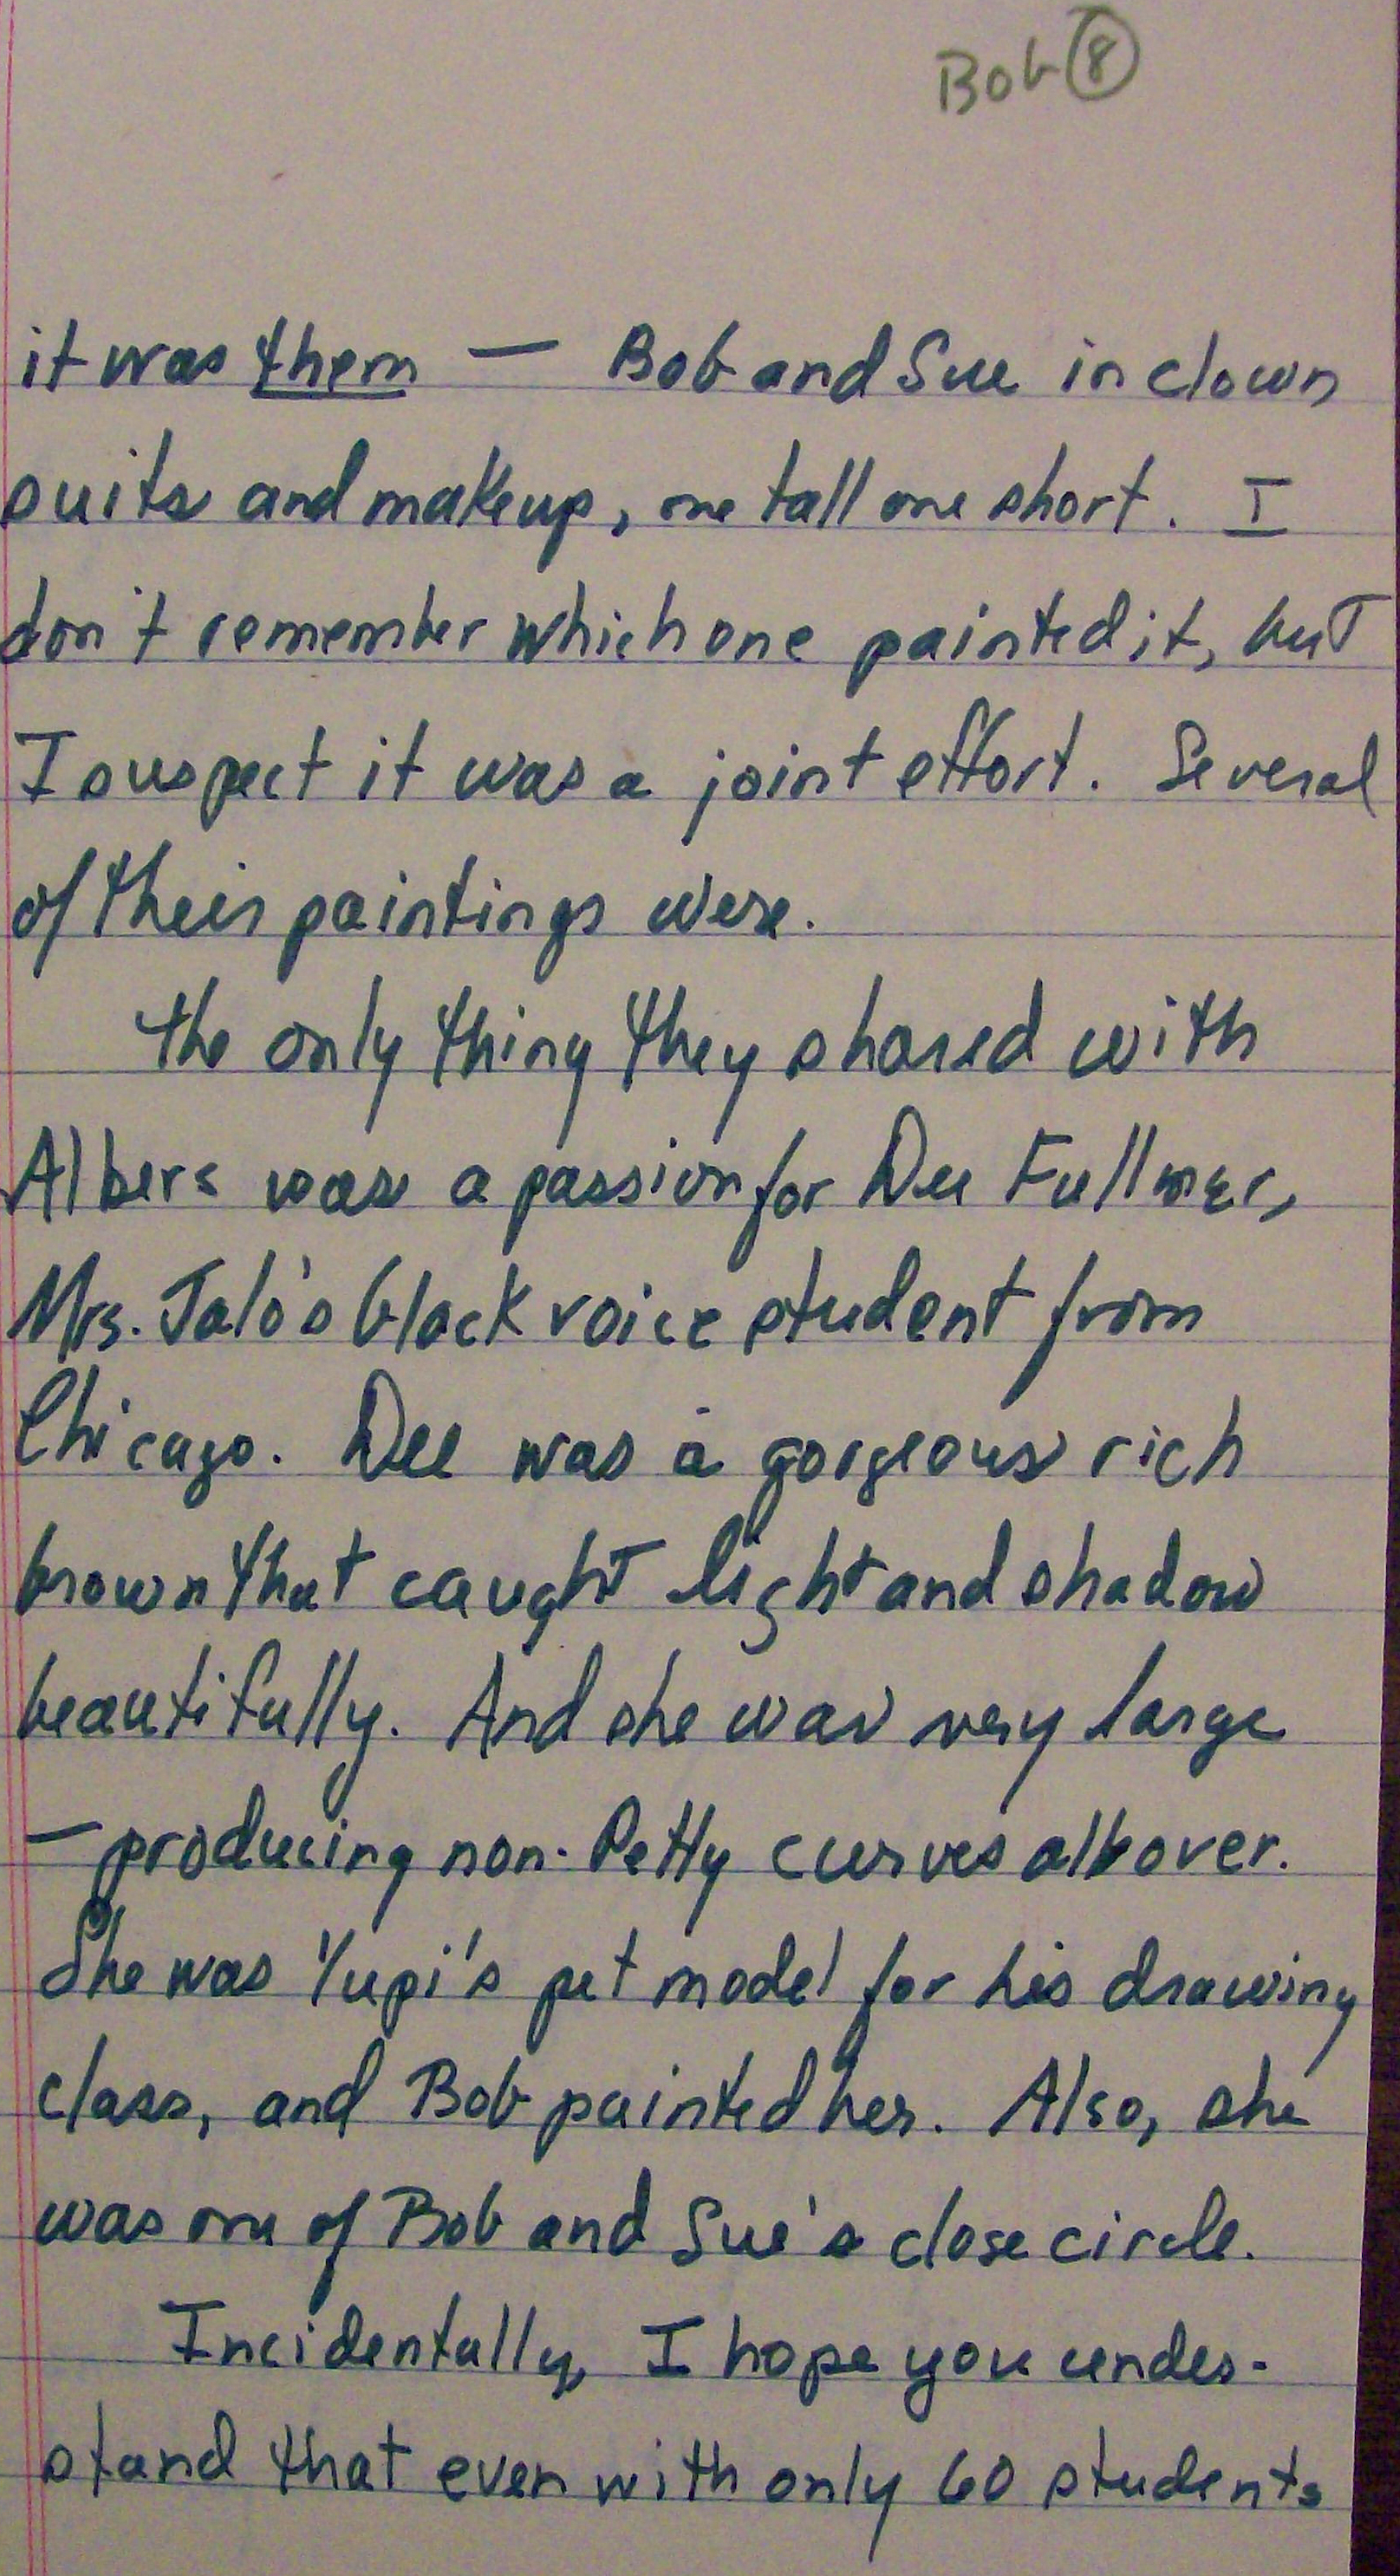 Bob 8
it was them — Bob and Sue in clown
suits and makeup, one tall one short. I
don't remember which one painted it, but
I suspect it was a joint effort. Several
of their paintings were.
the only thing they shared with
Albers was a passion for Dee Fullmer,
Mrs. Jalo's black voice student from
Chicago. Dee was a gorgeous rich
brown that caught light and shadow
beautifully. And she was very large
— producing non-Petty curves all over.
She was Yupi's pet model for his drawing
class, and Bob painted her. Also, she
was one of Bob and Sue's close circle.
Incidentally, I hope you under-
stand that even with only 60 students